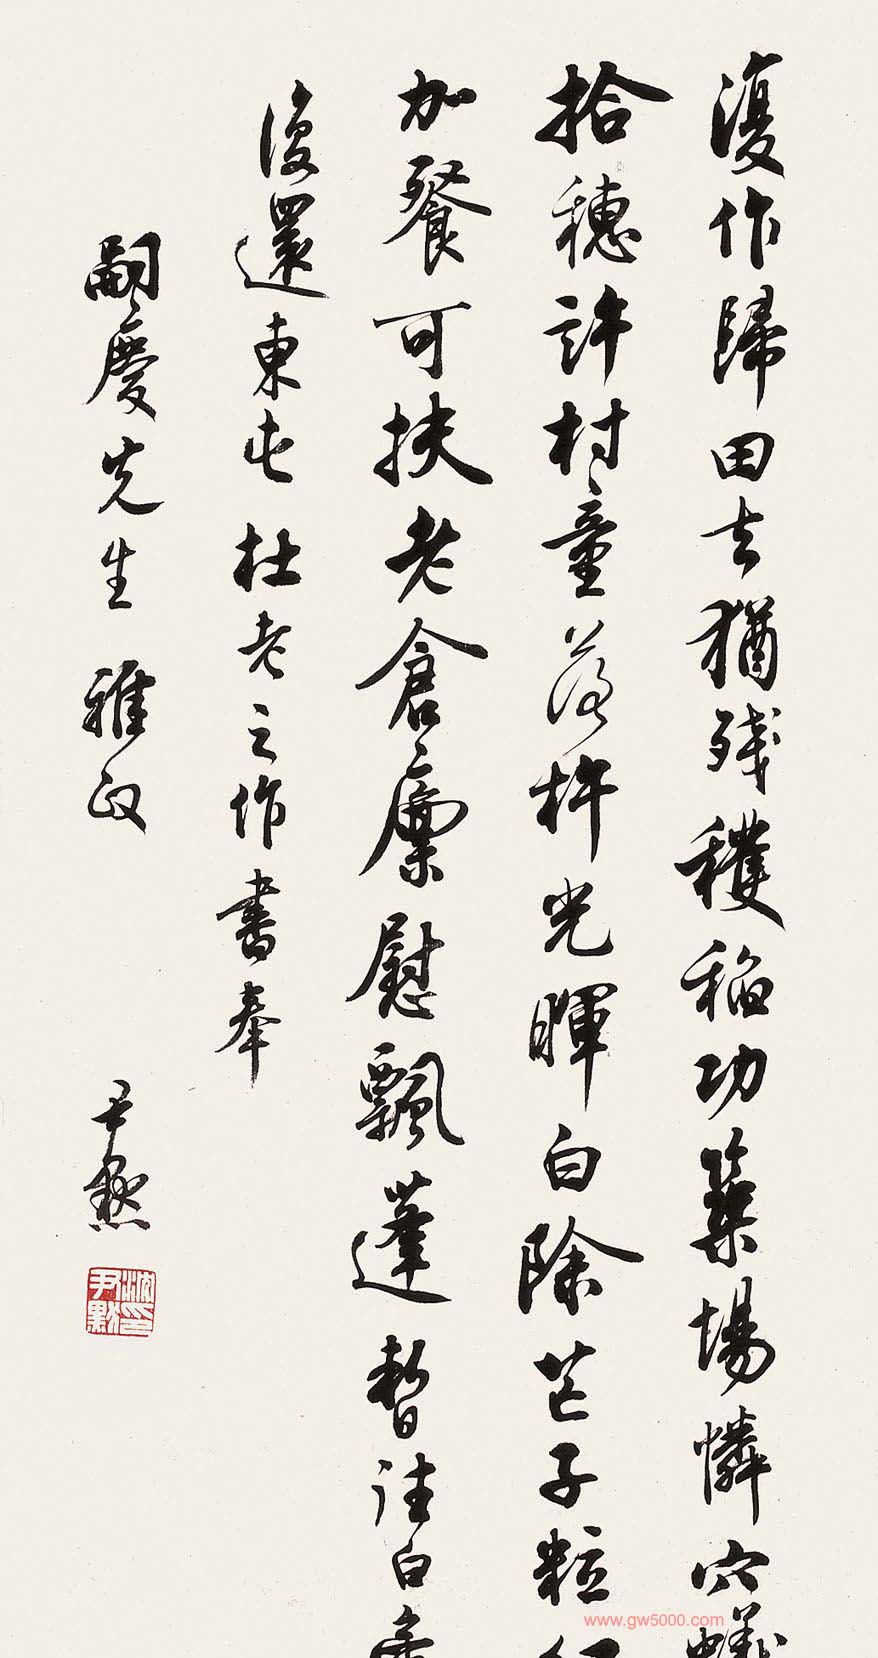 復作歸田去猶殘穫稻功築場憐穴蟻
拾穗許村童落杵光暉白除芒子粒紅
加餐可扶老倉廩慰飄蓬暫住白帝
復還東屯杜老之作書奉
嗣慶先生雅政
尹默
沈尹默印
www.gw5000.com